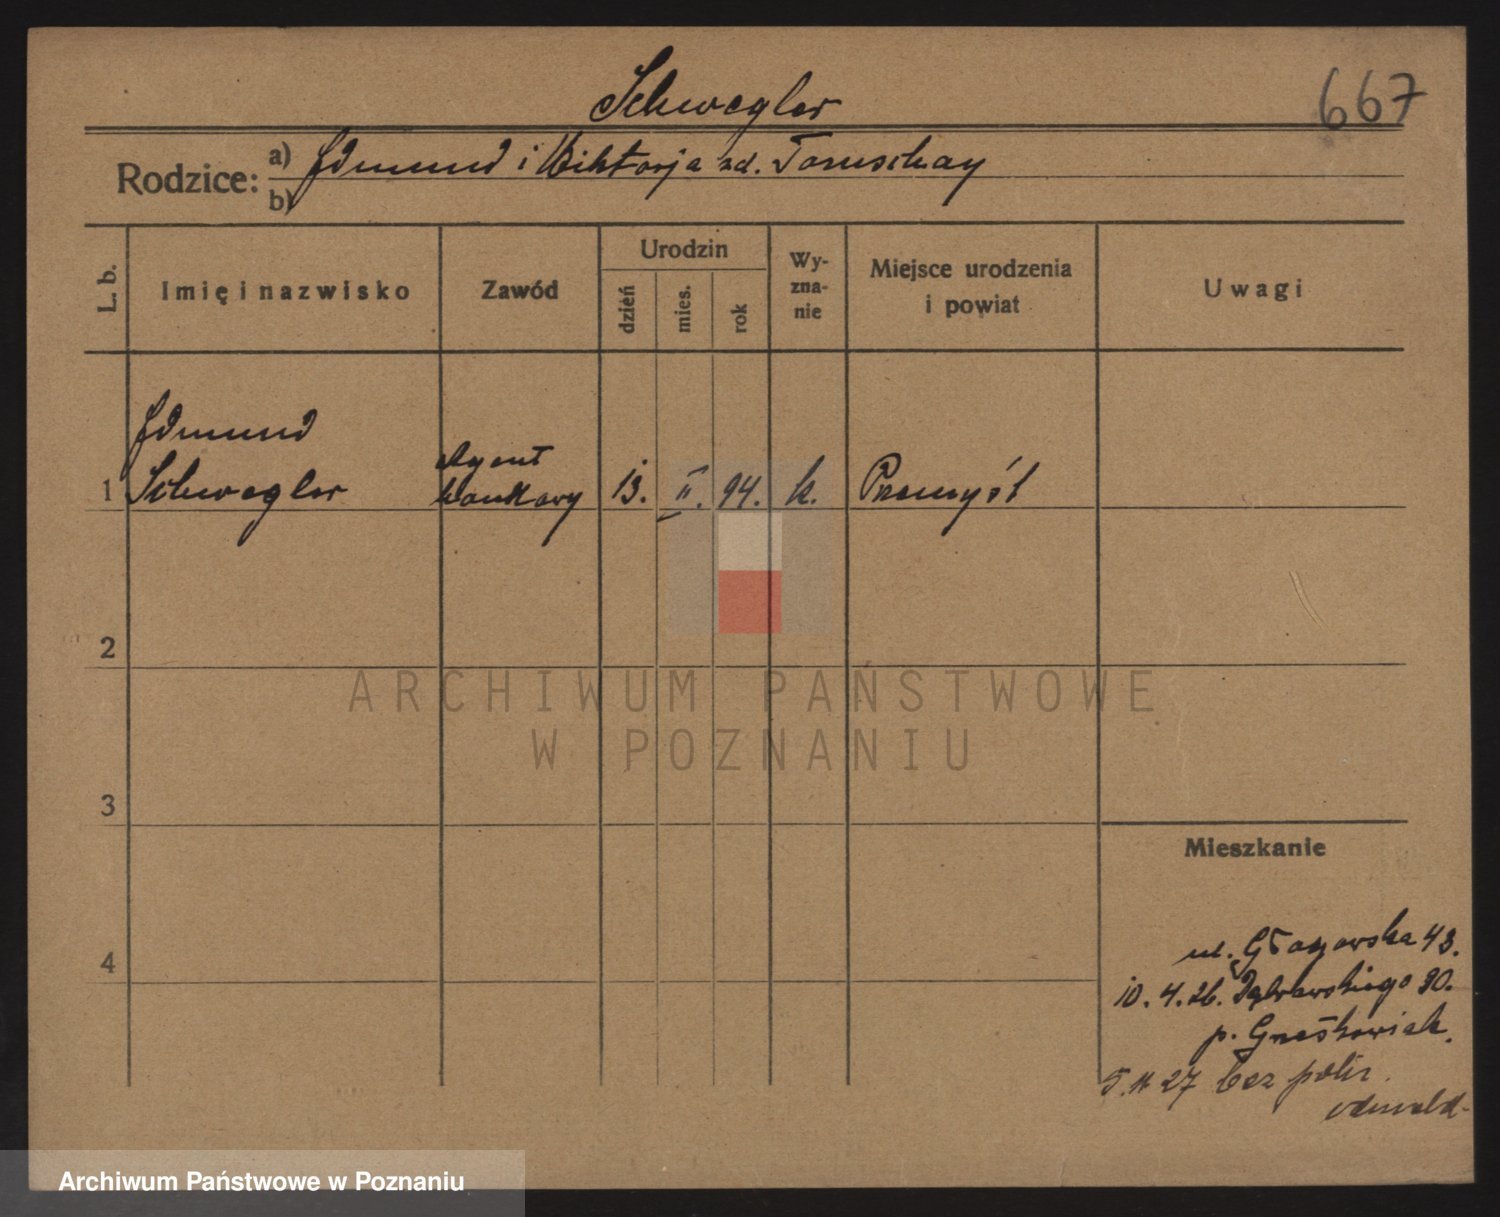 Schwegler
667
Rodzice:
a) Edmund i Wiktorja zd. Toruschay
b)
L. b.
Imię i nazwisko
Zawód
Urodzin
dzień
mies.
rok
Wy-
zna-
nie
Miejsce urodzenia
i powiat
Uwagi
Edmund
1 Schwegler
Agent
bankowy
13. II. 94. k. Przemyśl
2
3
4
Mieszkanie
ul. Głogowska 43.
10. 4. 26. Dąbrowskiego 90.
p.
5. 27 bez polic.
ARCHIWUM PAŃSTWOWE
W POZNANIU
Archiwum Państwowe w Poznaniu